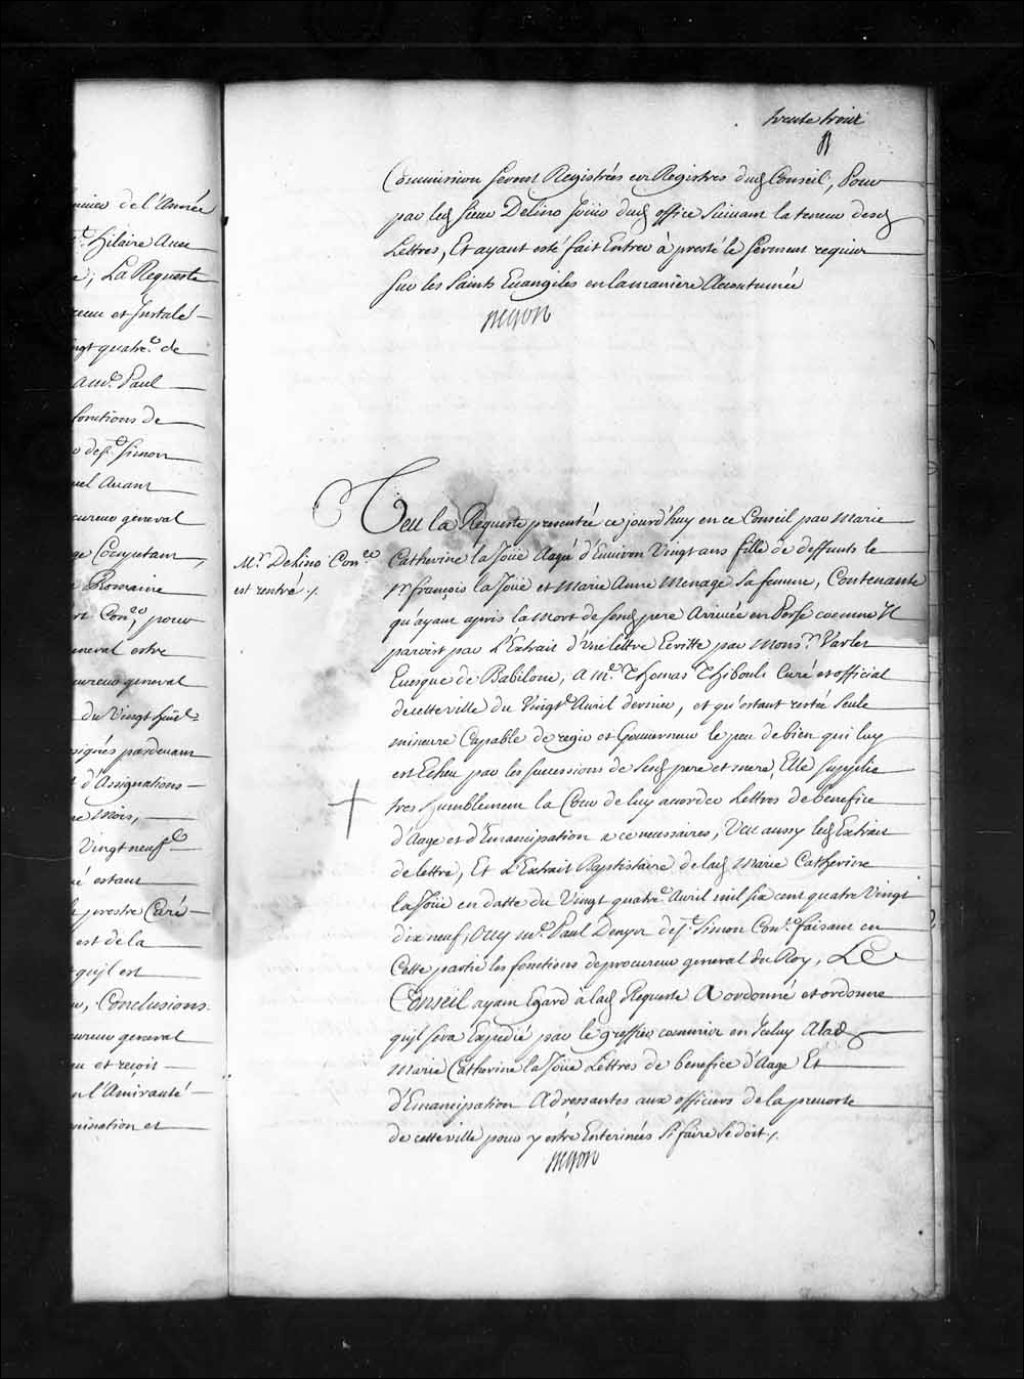 nier de l'Année
Hilaire Anne
La Requeste
et Instalé
vingt quatre.e de
Paul
fonctions de
dep. Simon
Avant
cureur general
Cocqutam,
Romaine
Con.er pour
neral estre
cureur general
du Vingt huict
signés pardevant
d'Assignations
Mois,
Vingt neuf
estant
prestre Curé
est de la
quil est
Conclusions
cureur general
et reçoit
l'Amirauté
mination et
trente trois
Commission seront Registrés en Registres dud Conseil, Pour
par led sieur Delino Joüir dud office suivant la teneur desd
Lettres, Et ayant esté fait Entrer à presté le serment requis
sur les Saints Evangiles en la maniere Accoutumée
Veu la Requeste presentée ce jourd'huy en ce Conseil par Marie
Mr. Delino Con.er
est rentré ./.
Catherine la Joüe Aagée d'Environ Vingt ans fille de deffunts le
Sr. françois la Joüe et Marie Anne Menage sa femme, Contenante
qu'ayant apris la Mort de sond pere Arrivée en Perse comme Il
paroist par L'Extrait d'une lettre Ecritte par Mons.r Varlet
Evesque de Babilone, A Me. Thomas Thiboult Curé et official
de cette ville du Vingt Avril dernier, et qu'estant restée seule
mineure Capable de regir et Gouverner le peu de bien qui luy
est Echeu par les successions de sesd pere et mere, Elle supplie
tres humblement la Cour de luy accorder Lettres de benefice
d'Aage et d'Emancipation a ce necessaires, Veu aussy led Extrait
de lettre, Et L'Extrait Baptistaire de lad Marie Catherine
la Joüe en datte du Vingt quatre.e Avril mil six cent quatre Vingt
dix neuf, Ouy Me. Paul Denys de St. Simon Con.er faisant en
Cette partie les fonctions de procureur general du Roy, Le
Conseil ayant Egard à lad Requeste A ordonné et ordonne
quil sera Expedié par le greffier commis en Iceluy A lad
Marie Catherine la Joüe Lettres de benefice d'Aage Et
d'Emancipation Adressantes aux officiers de la prevosté
de cette ville pour y estre Enterinées Si faire se doit ./.